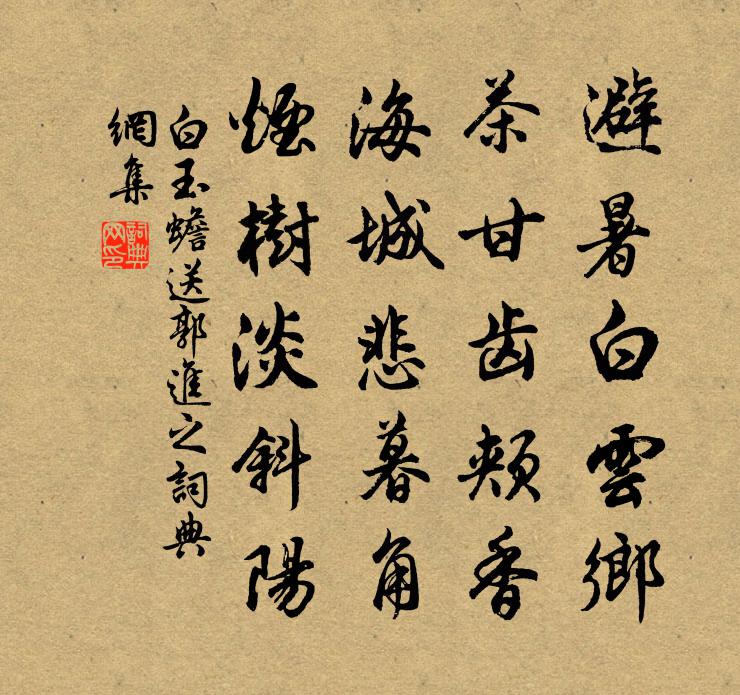 避暑白雲鄉
茶甘齿頰香
海城悲暮角
煙樹淡斜陽
白玉蟾送郭進之詞典
網集
詞典
网印